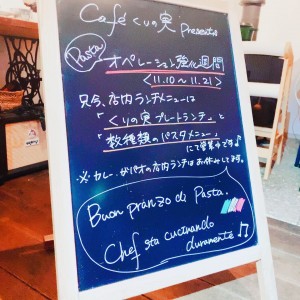 Café くりの実 presents
Pasta
オペレーション強化週間
<11.10〜11.21>
只今、店内ランチメニューは
「くりの実プレートランチ」と
「数種類のパスタメニュー」
にて営業中です♪
※カレー、ガパオの店内ランチはお休みします。
Buon pranzo di Pasta.
Chef sta cucinando
duramente!♫